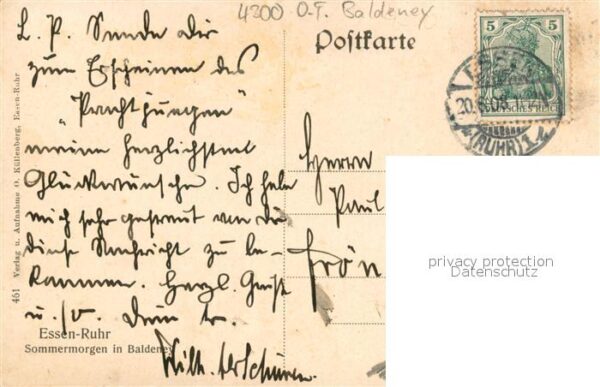 4300 O.T. Baldeney
Postkarte
5
DEUTSCHES REICH
ESSEN
20.
(RUHR) 1
L. P. Sende dir
zum Erscheinen des
"Prachtjungen"
meine herzlichsten
Glückwünsche. Ich habe
mich sehr gefreut von dir
diese Nachricht zu be-
kommen. Herzl. Gruß
u.
Wilh. terSchüren.
Herrn
Paul
Frön
461 Verlag u. Aufnahme O. Küllenberg, Essen-Ruhr
Essen-Ruhr
Sommermorgen in Baldeney
privacy protection
Datenschutz